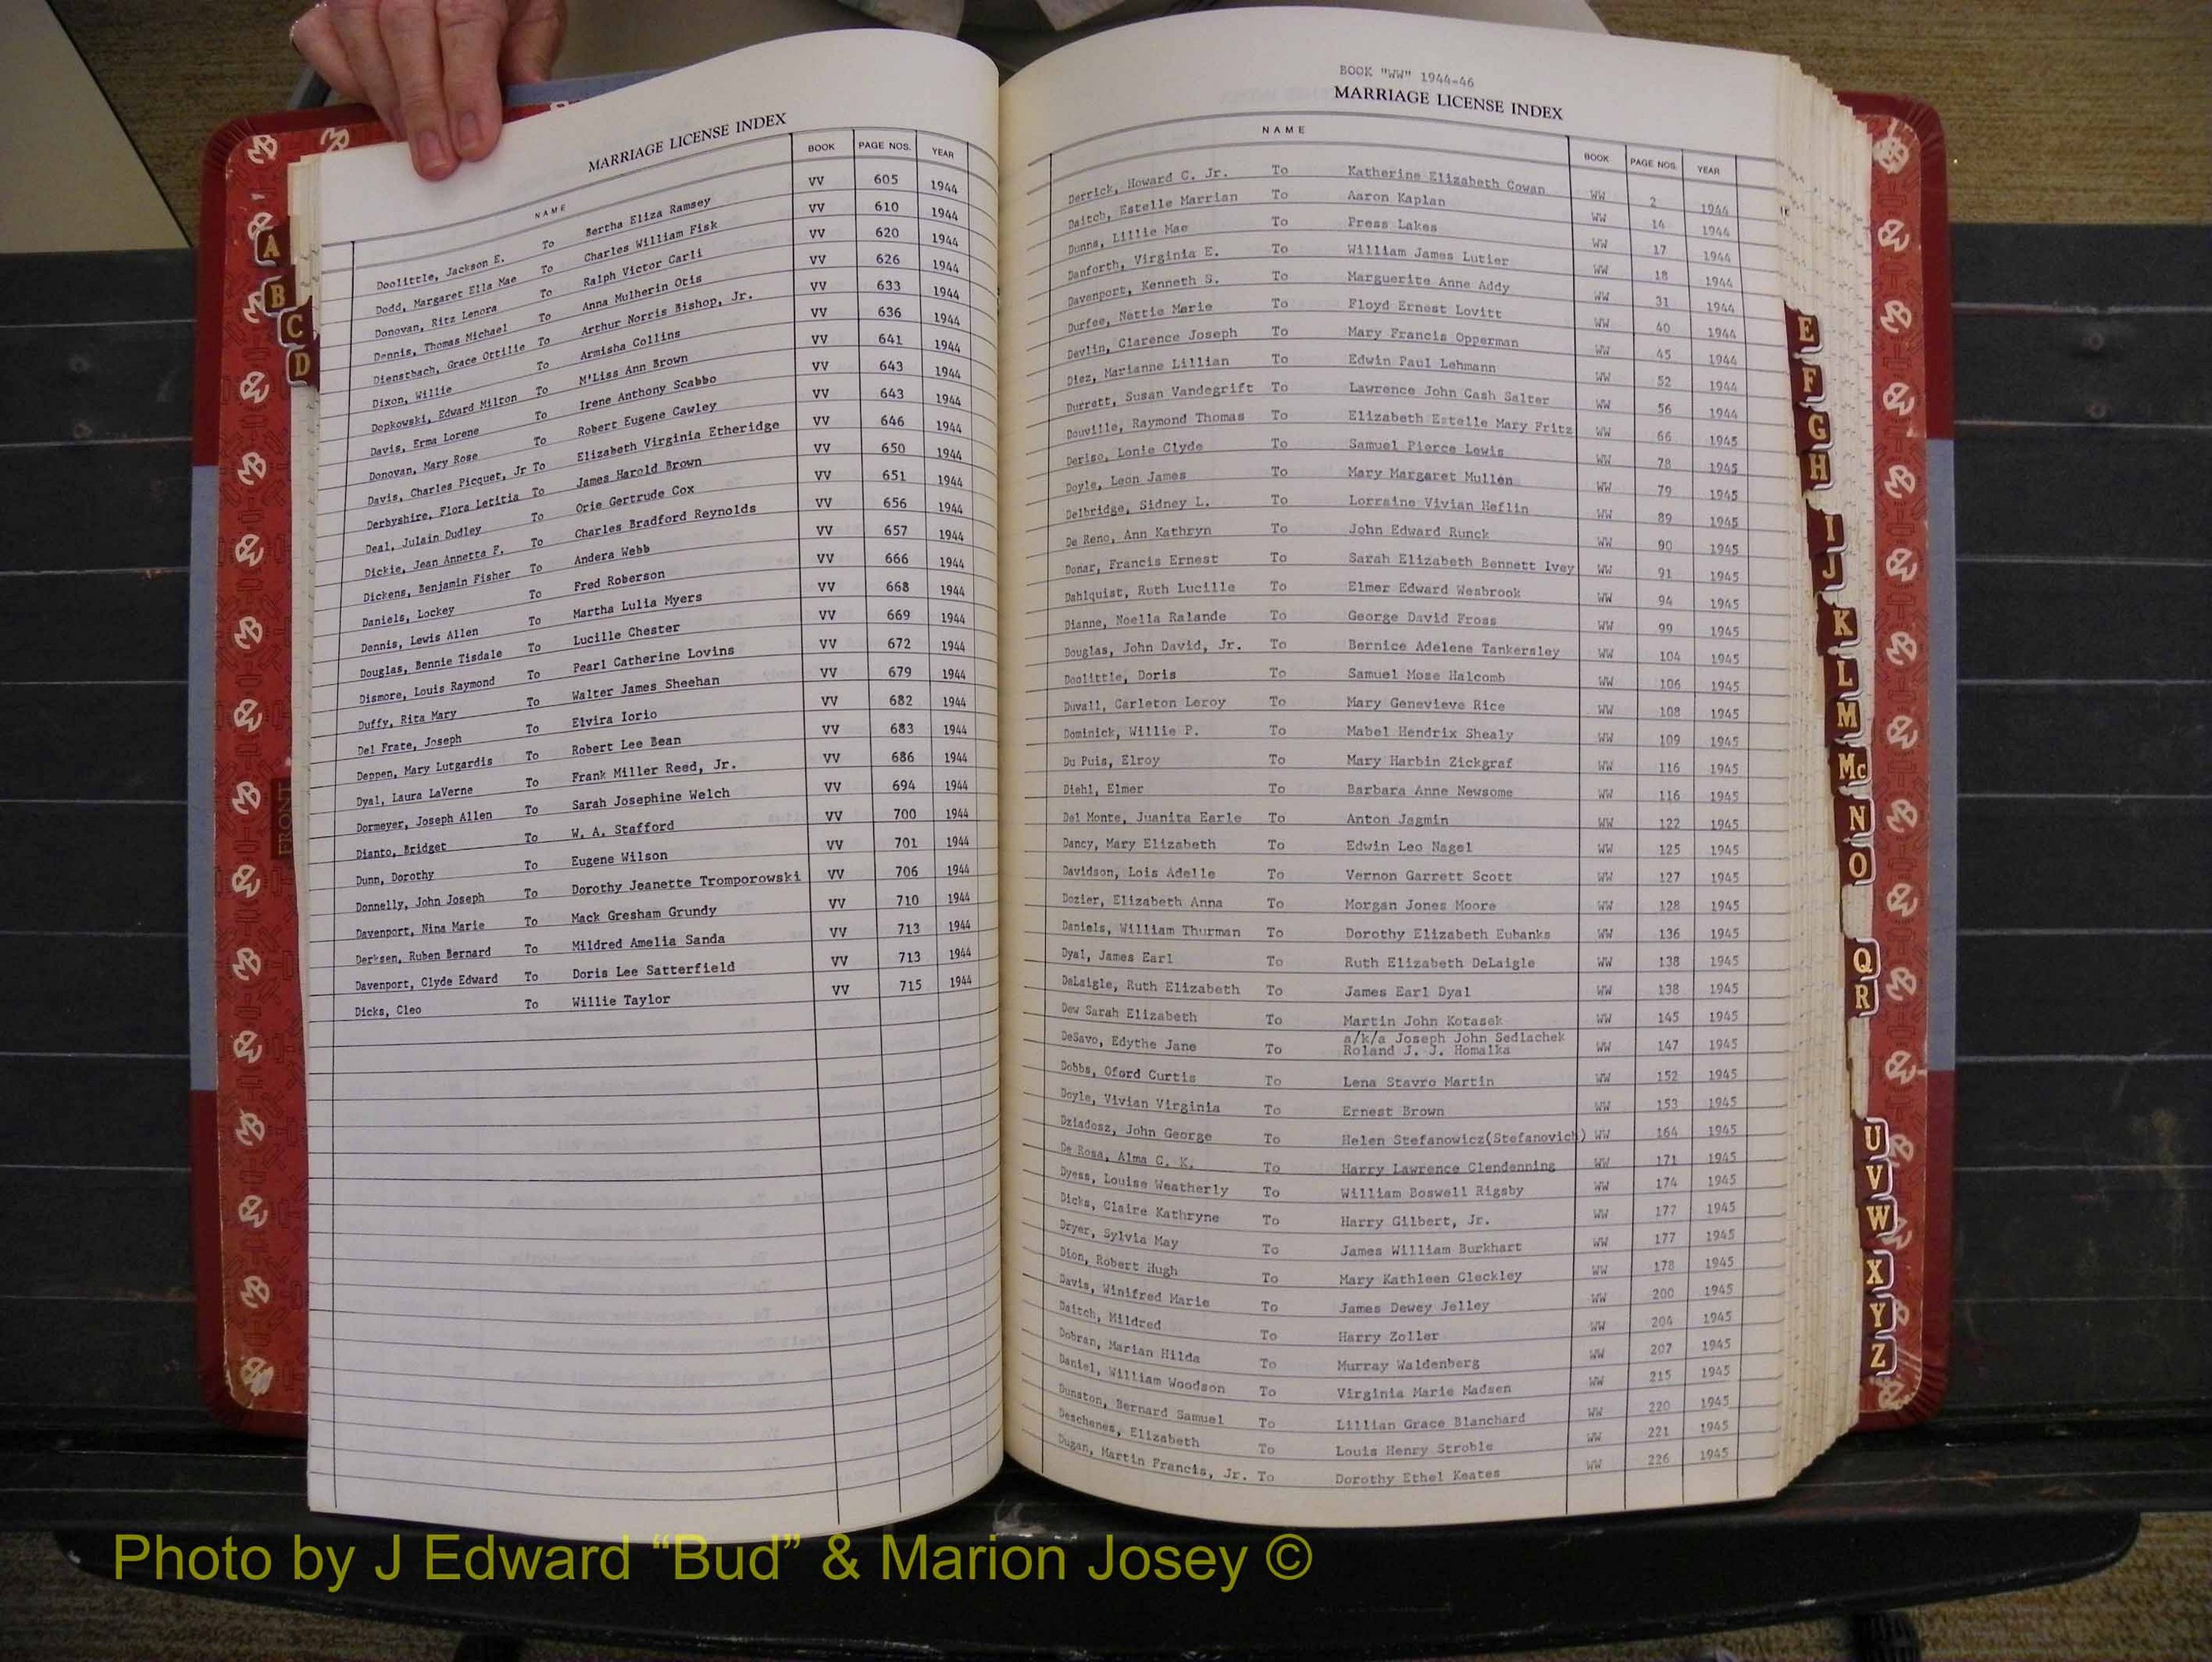 MARRIAGE LICENSE INDEX
NAME BOOK PAGE NOS. YEAR
Doolittle, Jackson E. To Bertha Eliza Ramsey VV 605 1944
Dodd, Margaret Ella Mae To Charles William Fisk VV 610 1944
Donovan, Ritz Lenora To Ralph Victor Carli VV 620 1944
Dennis, Thomas Michael To Anna Mulherin Otis VV 626 1944
Dienstbach, Grace Ottilie To Arthur Norris Bishop, Jr. VV 633 1944
Dixon, Willie To Armisha Collins VV 636 1944
Dopkowski, Edward Milton To M'Liss Ann Brown VV 641 1944
Davis, Erma Lorene To Irene Anthony Scabbo VV 643 1944
Donovan, Mary Rose To Robert Eugene Cawley VV 643 1944
Davis, Charles Picquet, Jr To Elizabeth Virginia Etheridge VV 646 1944
Derbyshire, Flora Letitia To James Harold Brown VV 650 1944
Deal, Julain Dudley To Orie Gertrude Cox VV 651 1944
Dickie, Jean Annetta F. To Charles Bradford Reynolds VV 656 1944
Dickens, Benjamin Fisher To Andera Webb VV 657 1944
Daniels, Lockey To Fred Roberson VV 666 1944
Dennis, Lewis Allen To Martha Lulia Myers VV 668 1944
Douglas, Bennie Tisdale To Lucille Chester VV 669 1944
Dismore, Louis Raymond To Pearl Catherine Lovins VV 672 1944
Duffy, Rita Mary To Walter James Sheehan VV 679 1944
Del Frate, Joseph To Elvira Iorio VV 682 1944
Deppen, Mary Lutgardis To Robert Lee Bean VV 683 1944
Dyal, Laura LaVerne To Frank Miller Reed, Jr. VV 686 1944
Dormeyer, Joseph Allen To Sarah Josephine Welch VV 694 1944
Dianto, Bridget To W. A. Stafford VV 700 1944
Dunn, Dorothy To Eugene Wilson VV 701 1944
Donnelly, John Joseph To Dorothy Jeanette Tromporowski VV 706 1944
Davenport, Nina Marie To Mack Gresham Grundy VV 710 1944
Derksen, Ruben Bernard To Mildred Amelia Sanda VV 713 1944
Davenport, Clyde Edward To Doris Lee Satterfield VV 713 1944
Dicks, Cleo To Willie Taylor VV 715 1944
BOOK "WW" 1944-46
MARRIAGE LICENSE INDEX
NAME BOOK PAGE NOS. YEAR
Derrick, Howard C. Jr. To Katherine Elizabeth Cowan WW 2 1944
Daitch, Estelle Marrian To Aaron Kaplan WW 14 1944
Dunns, Lillie Mae To Press Lakes WW 17 1944
Danforth, Virginia E. To William James Lutier WW 18 1944
Davenport, Kenneth S. To Marguerite Anne Addy WW 31 1944
Durfee, Nettie Marie To Floyd Ernest Lovitt WW 40 1944
Devlin, Clarence Joseph To Mary Francis Opperman WW 45 1944
Diez, Marianne Lillian To Edwin Paul Lehmann WW 52 1944
Durrett, Susan Vandegrift To Lawrence John Cash Salter WW 56 1944
Douville, Raymond Thomas To Elizabeth Estelle Mary Fritz WW 66 1945
Deriso, Lonie Clyde To Samuel Pierce Lewis WW 78 1945
Doyle, Leon James To Mary Margaret Mullen WW 79 1945
Delbridge, Sidney L. To Lorraine Vivian Heflin WW 89 1945
De Reno, Ann Kathryn To John Edward Runck WW 90 1945
Donar, Francis Ernest To Sarah Elizabeth Bennett Ivey WW 91 1945
Dahlquist, Ruth Lucille To Elmer Edward Wesbrook WW 94 1945
Dianne, Noella Ralande To George David Fross WW 99 1945
Douglas, John David, Jr. To Bernice Adelene Tankersley WW 104 1945
Doolittle, Doris To Samuel Mose Halcomb WW 106 1945
Duvall, Carleton Leroy To Mary Genevieve Rice WW 108 1945
Dominick, Willie P. To Mabel Hendrix Shealy WW 109 1945
Du Puis, Elroy To Mary Harbin Zickgraf WW 116 1945
Diehl, Elmer To Barbara Anne Newsome WW 116 1945
Del Monte, Juanita Earle To Anton Jagmin WW 122 1945
Dancy, Mary Elizabeth To Edwin Leo Nagel WW 125 1945
Davidson, Lois Adelle To Vernon Garrett Scott WW 127 1945
Dozier, Elizabeth Anna To Morgan Jones Moore WW 128 1945
Daniels, William Thurman To Dorothy Elizabeth Eubanks WW 136 1945
Dyal, James Earl To Ruth Elizabeth DeLaigle WW 138 1945
DeLaigle, Ruth Elizabeth To James Earl Dyal WW 138 1945
Dew Sarah Elizabeth To Martin John Kotasek WW 145 1945
a/k/a Joseph John Sedlachek
DeSavo, Edythe Jane To Roland J. J. Homalka WW 147 1945
Dobbs, Oford Curtis To Lena Stavro Martin WW 152 1945
Doyle, Vivian Virginia To Ernest Brown WW 153 1945
Dziadosz, John George To Helen Stefanowicz(Stefanovich) WW 164 1945
De Rosa, Alma C. K. To Harry Lawrence Clendenning WW 171 1945
Dyess, Louise Weatherly To William Boswell Rigsby WW 174 1945
Dicks, Claire Kathryne To Harry Gilbert, Jr. WW 177 1945
Dryer, Sylvia May To James William Burkhart WW 177 1945
Dion, Robert Hugh To Mary Kathleen Cleckley WW 178 1945
Davis, Winifred Marie To James Dewey Jelley WW 200 1945
Daitch, Mildred To Harry Zoller WW 204 1945
Dobran, Marian Hilda To Murray Waldenberg WW 207 1945
Daniel, William Woodson To Virginia Marie Madsen WW 215 1945
Dunston, Bernard Samuel To Lillian Grace Blanchard WW 220 1945
Deschenes, Elizabeth To Louis Henry Stroble WW 221 1945
Dugan, Martin Francis, Jr. To Dorothy Ethel Keates WW 226 1945
A
B
C
D
FRONT
E
F
G
H
I
J
K
L
M
Mc
N
O
Q
R
U
V
W
X
Y
Z
Photo by J Edward “Bud” & Marion Josey ©